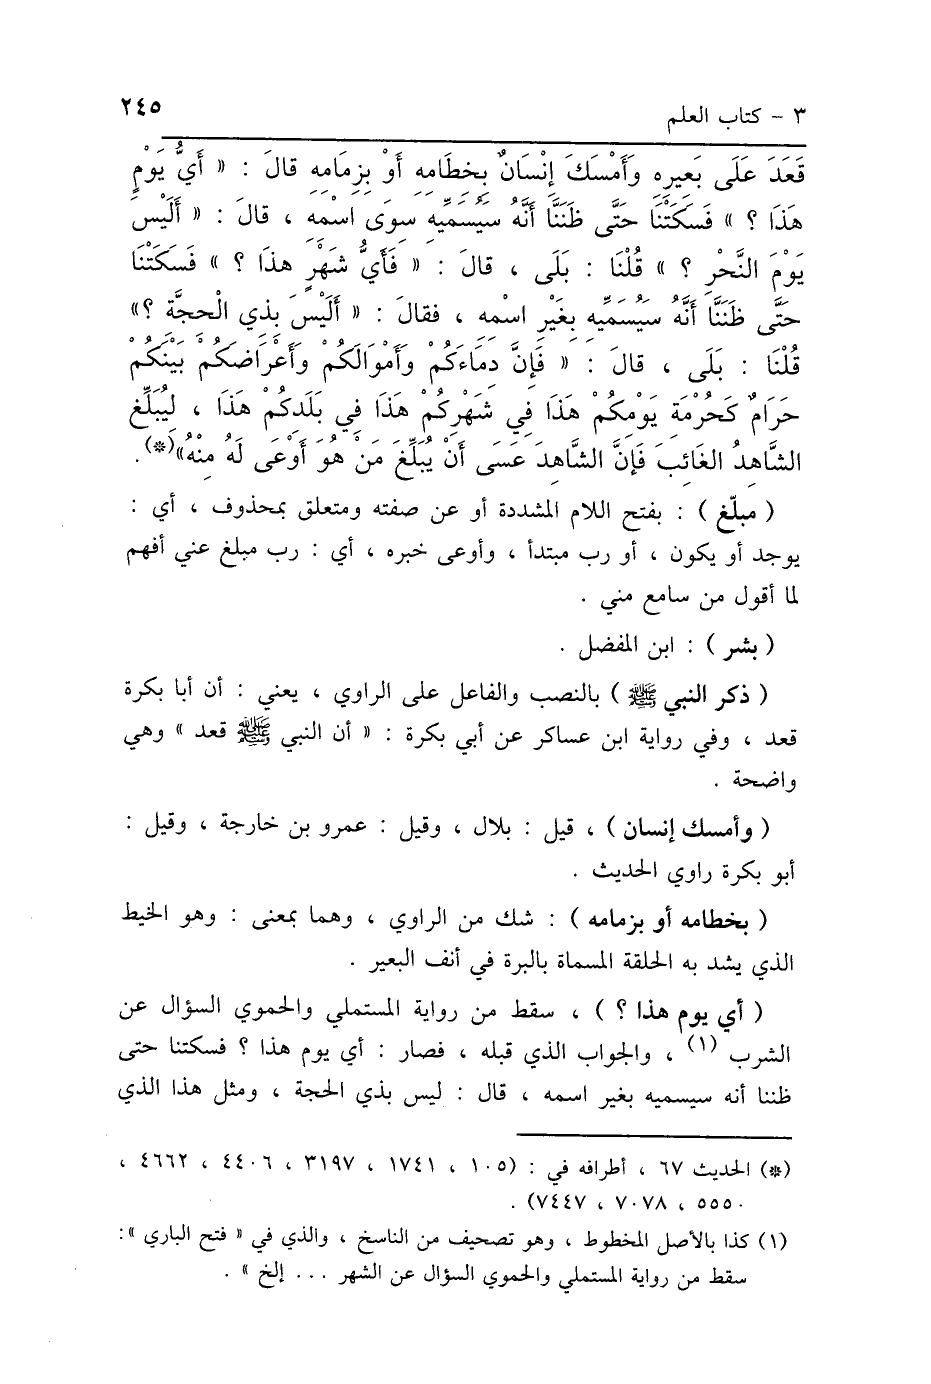 ٣ - كتاب العلم ٢٤٥
قَعَدَ عَلَى بَعِيرِهِ وَأَمْسَكَ إِنْسَانٌ بِخِطَامِهِ أَوْ بِزِمَامِهِ قالَ : « أَيُّ يَوْمٍ
هَذَا ؟ » فَسَكَتْنَا حَتَّى ظَنَنَّا أَنَّهُ سَيُسَمِّيهِ سِوَى اسْمِهِ ، قالَ : « أَلَيْسَ
يَوْمَ النَّحْرِ ؟ » قُلْنَا : بَلَى ، قالَ : « فَأَيُّ شَهْرٍ هذَا ؟ » فَسَكَتْنَا
حَتَّى ظَنَنَّا أَنَّهُ سَيُسَمِّيهِ بِغَيْرِ اسْمِهِ ، فقالَ : « أَلَيْسَ بِذِي الْحِجَّةِ ؟»
قُلْنَا : بَلَى ، قالَ : « فَإِنَّ دِمَاءَكُمْ وَأَمْوَالَكُمْ وَأَعْرَاضَكُمْ بَيْنَكُمْ
حَرَامٌ كَحُرْمَةِ يَوْمِكُمْ هَذَا فِي شَهْرِكُمْ هَذَا فِي بَلَدِكُمْ هَذَا ، لِيُبَلِّغِ
الشَّاهِدُ الغَائِبَ فَإِنَّ الشَّاهِدَ عَسَى أَنْ يُبَلِّغَ مَنْ هُوَ أَوْعَى لَهُ مِنْهُ»(*).
( مبلّغ ) : بفتح اللام المشددة أو عن صفته ومتعلق بمحذوف ، أي :
يوجد أو يكون ، أو رب مبتدأ ، وأوعى خبره ، أي : رب مبلغ عني أفهم
لما أقول من سامع مني .
( بشر ) : ابن المفضل .
( ذكر النبي ﷺ ) بالنصب والفاعل على الراوي ، يعني : أن أبا بكرة
قعد ، وفي رواية ابن عساكر عن أبي بكرة : « أن النبي ﷺ قعد » وهي
واضحة .
( وأمسك إنسان ) ، قيل : بلال ، وقيل : عمرو بن خارجة ، وقيل :
أبو بكرة راوي الحديث .
( بخطامه أو بزمامه ) : شك من الراوي ، وهما بمعنى : وهو الخيط
الذي يشد به الحلقة المسماة بالبرة في أنف البعير .
( أي يوم هذا ؟ ) ، سقط من رواية المستملي والحموي السؤال عن
الشرب (١) ، والجواب الذي قبله ، فصار : أي يوم هذا ؟ فسكتنا حتى
ظننا أنه سيسميه بغير اسمه ، قال : ليس بذي الحجة ، ومثل هذا الذي
(*) الحديث ٦٧ ، أطرافه في : (١٠٥ ، ١٧٤١ ، ٣١٩٧ ، ٤٤٠٦ ، ٤٦٦٢ ،
٥٥٥٠ ، ٧٠٧٨ ، ٧٤٤٧) .
(١) كذا بالأصل المخطوط ، وهو تصحيف من الناسخ ، والذي في « فتح الباري »:
سقط من رواية المستملي والحموي السؤال عن الشهر ... إلخ » .